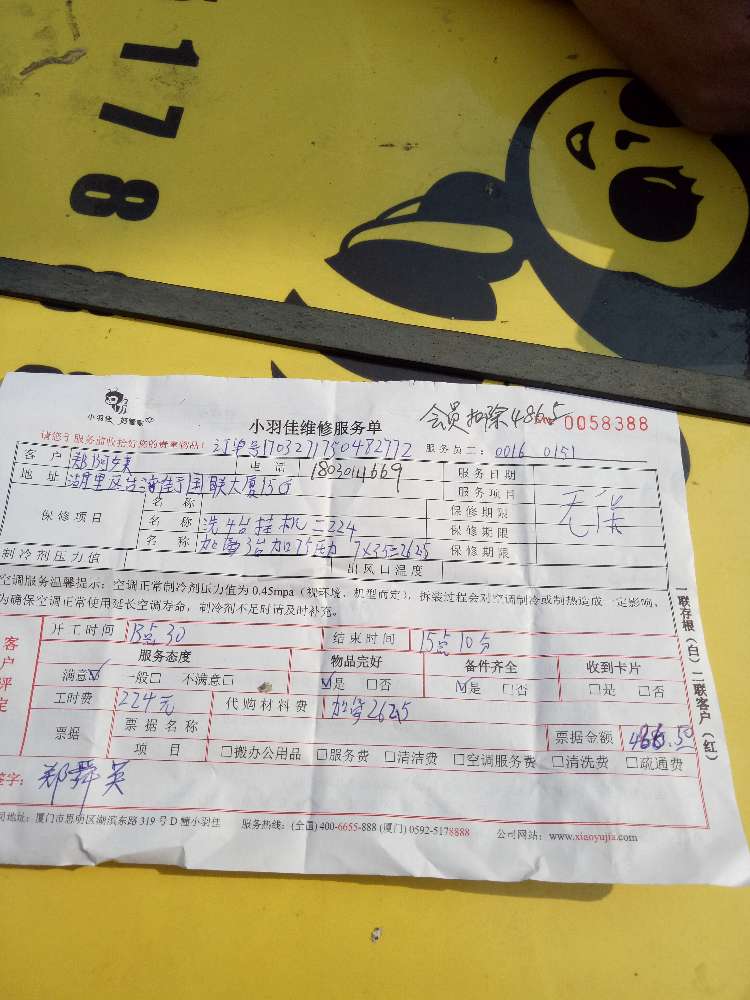 5178
小羽佳 好管家
小羽佳维修服务单
会员扣除486.5
No 0058388
请您于服务前收拾好您的贵重物品!
订单号1703271750482772
服务员工: 0016 0151
客户 郑 英
电话 18030141669
服务日期
地址 湖里区 国联大厦15
服务项目
无保
保修项目
名称
保修期限
名称 洗4台挂机=224
保修期限
名称 加 3台加75压力 7×35=262.5
保修期限
制冷剂压力值
出风口温度
空调服务温馨提示: 空调正常制冷剂压力值为 0.45mpa (视环境、机型而定), 拆装过程会对空调制冷或制热造成一定影响,
为确保空调正常使用延长空调寿命, 制冷剂不足时请及时补充。
一联存根(白) 二联客户(红)
客户评定
开工时间 13点30
结束时间 15点10分
服务态度
物品完好
备件齐全
收到卡片
满意☑ 一般□ 不满意□
☑是 □否
☑是 □否
□是 □否
工时费 224元
代购材料费 加 262.5
票据
票据名称
票据金额 486.50
项目 □搬办公用品 □服务费 □清洁费 □空调服务费 □清洗费 □疏通费
签字: 郑舜英
司地址: 厦门市思明区湖滨东路 319 号 D 幢小羽佳 服务热线: (全国) 400-6655-888 (厦门) 0592-5178888 公司网站: www.xiaoyujia.com